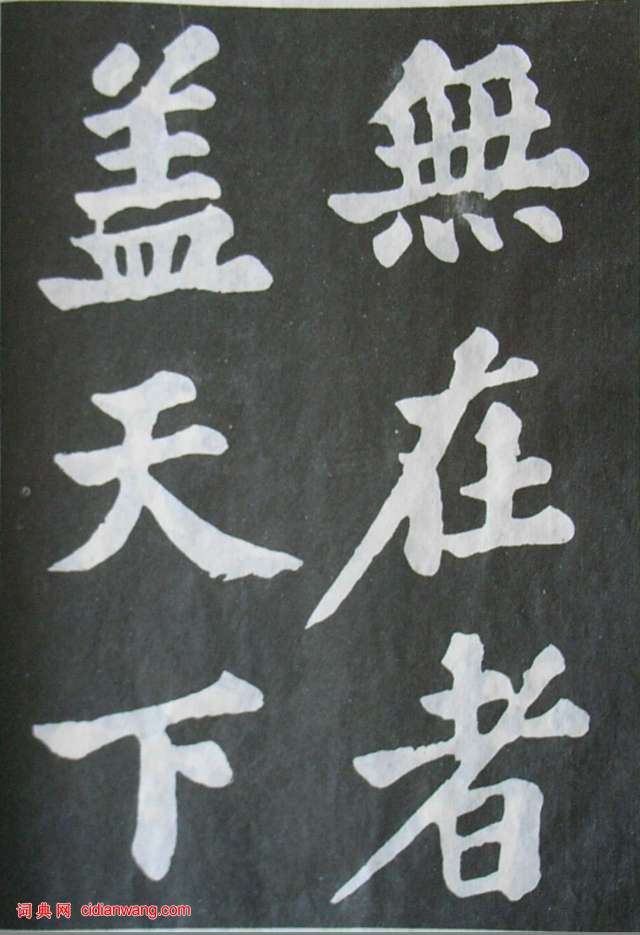 無在者
盖天下
词典网 cidianwang.com